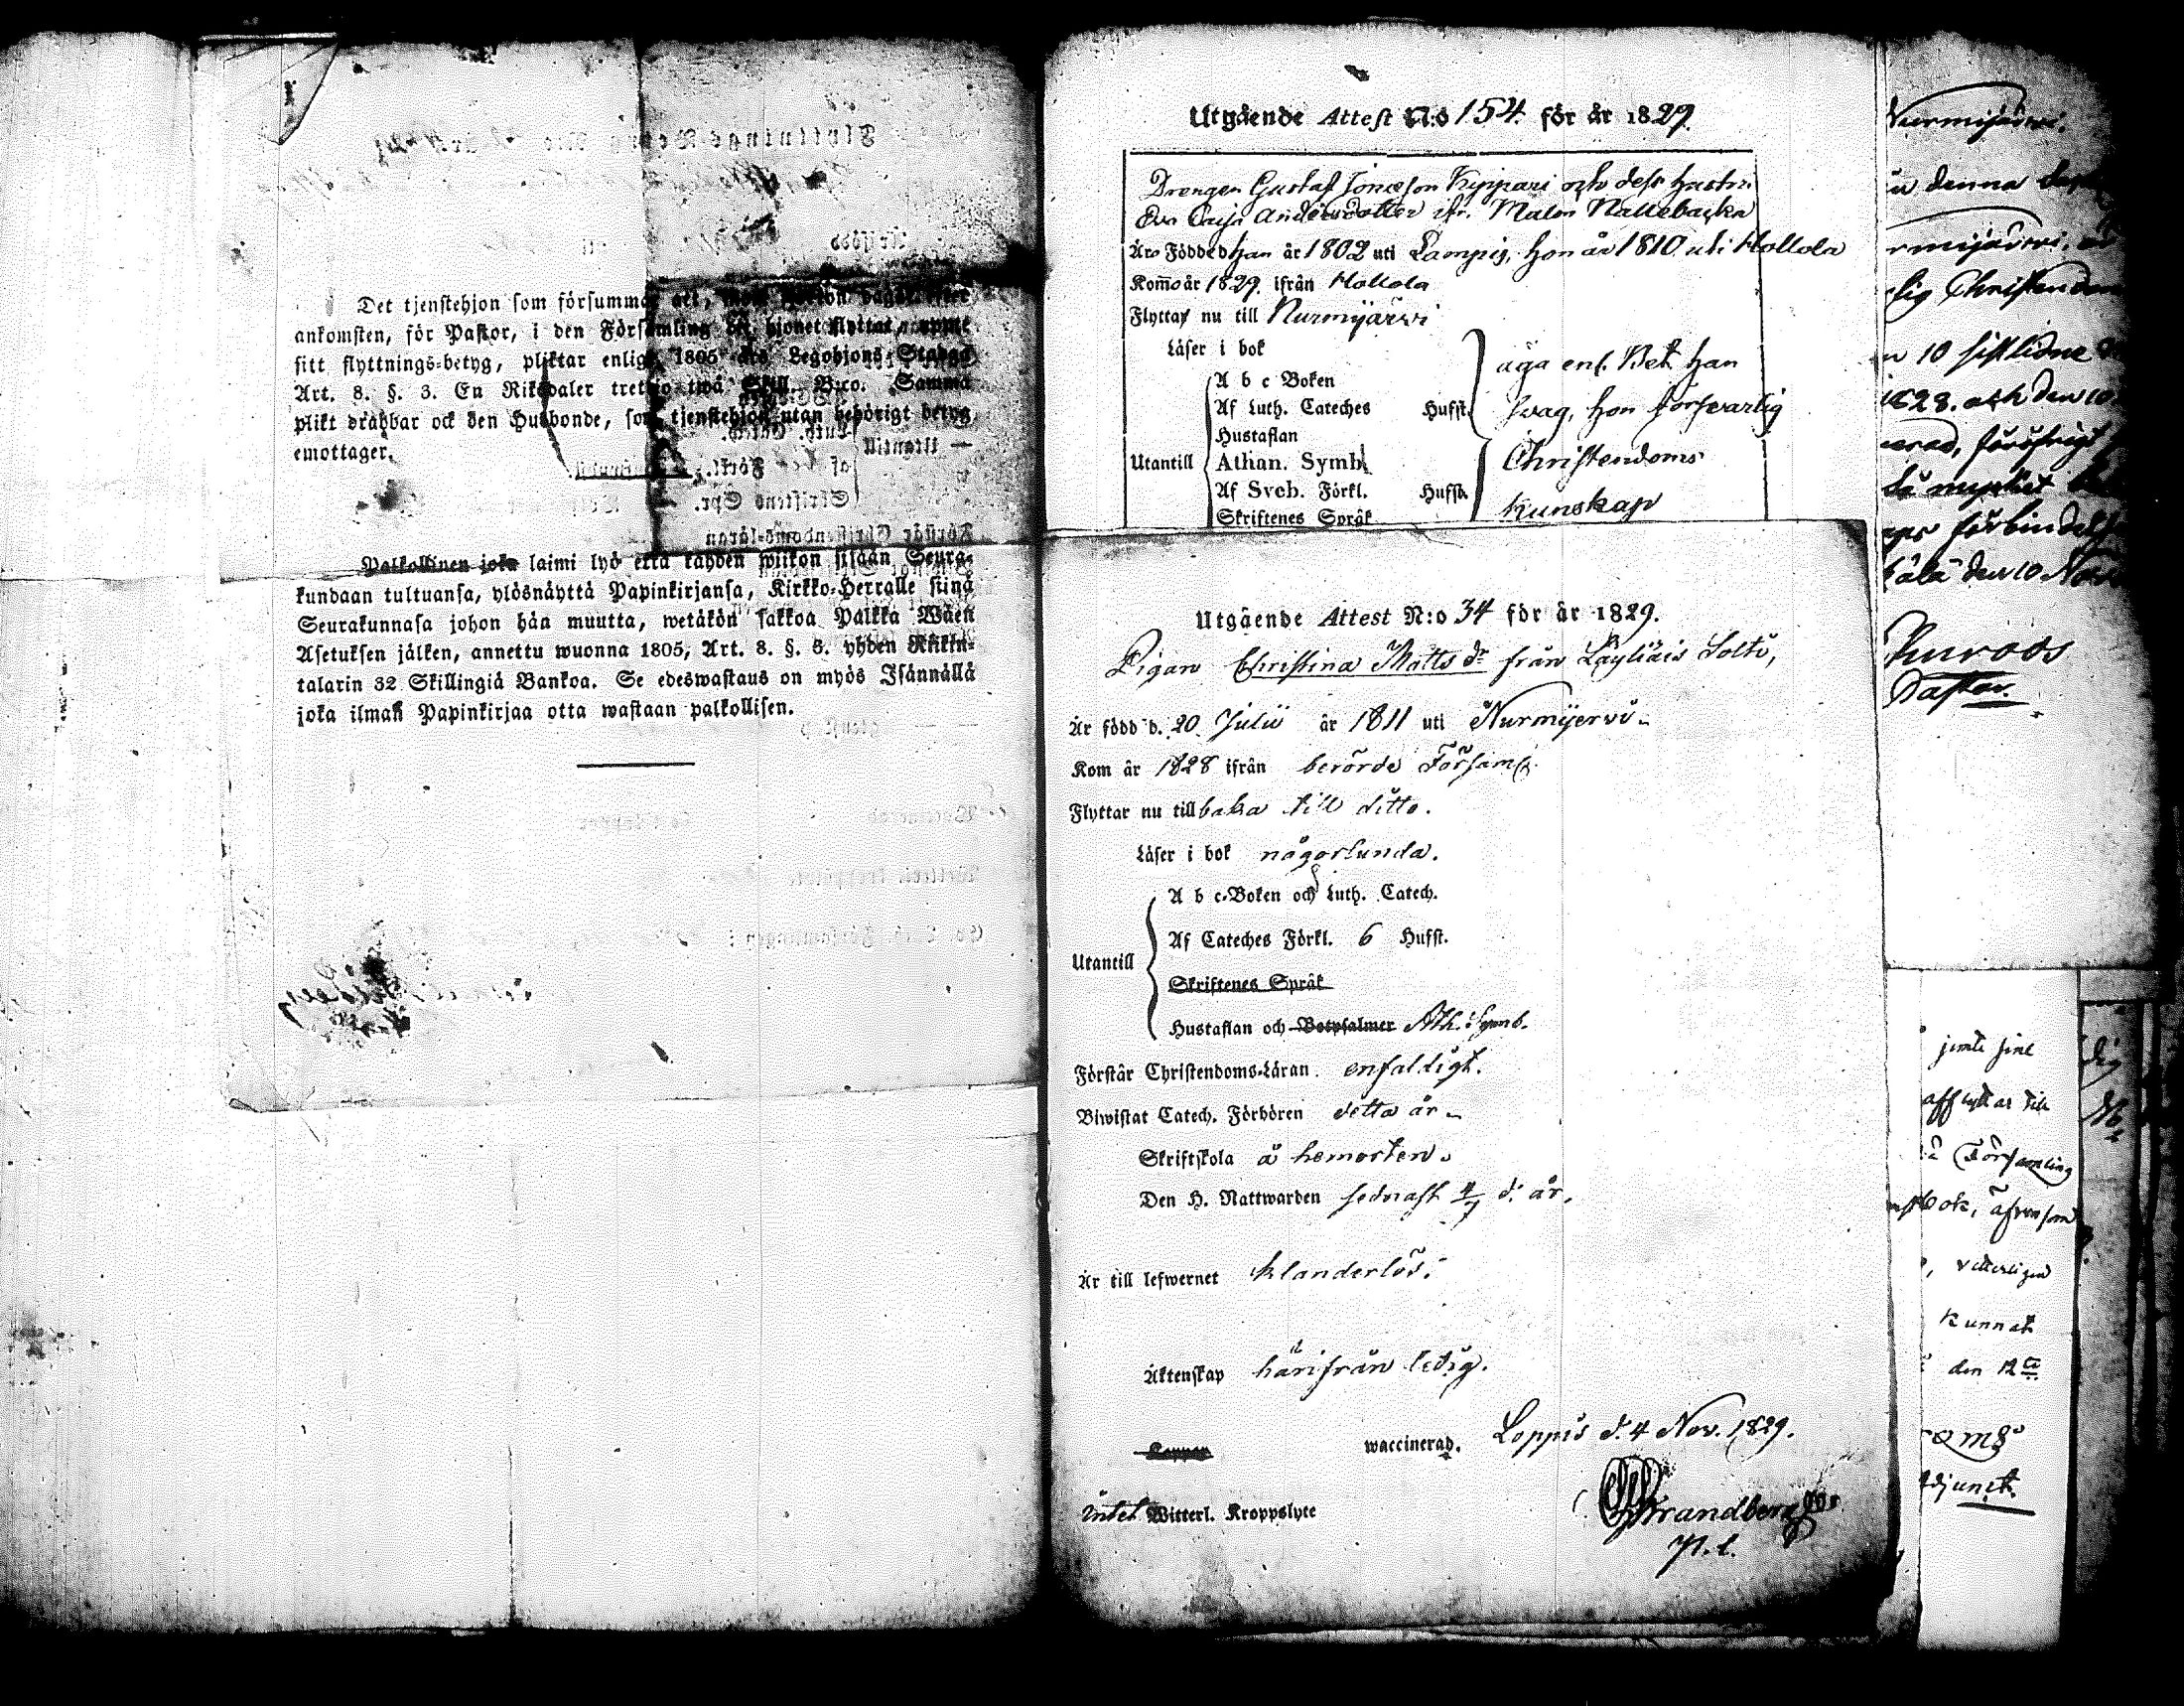 Det tjenstehjon som försummar att, inom
ankomsten, för Pastor, i den Församling dit hjonet flyttat, uppte
sitt flyttnings-betyg, pliktar enligt 1805 års Legohjons-Stadga
Art. 8. §. 3. En Riksdaler trettio twå Skill. B:co. Samma
plikt drabbar ock den Husbonde, som tjenstehjon utan behörigt betyg
emottager.
Palkollinen joka laimi lyö että kahden wiikon sisään Seura-
kundaan tultuansa, ylösnäyttä Papinkirjansa, Kirkko-Herralle siinä
Seurakunnasa johon hän muutta, wetäkön sakkoa Palkka Wäen
Asetuksen jälken, annettu wuonna 1805, Art. 8. §. 3. yhden Rikin-
talarin 32 Skillingiä Bankoa. Se edeswastaus on myös Isännällä
joka ilman Papinkirjaa otta wastaan palkollisen.
Utgående Attest N:o 154 för år 1829.
Drengen Gustaf Jonasson Kyppari och dess hustru
Eva Caisa Andersdotter ifr. Malm Nallebacka
Äro Födde han år 1802 uti Lampis, hon år 1810 uti Hollola
Kommo år 1829. ifrån Hollola
Flyttar nu till Nurmijärwi
Läser i bok
A b c Boken
Af Luth. Cateches Hufst.
Hustaflan
Utantill Athan. Symb.
Af Sveb. Förkl. Hufst.
Skriftenes Språk
äga enl. Bet. han
swag, hon försvarlig
Christendoms
kunskap
Utgående Attest N:o 34 för år 1829.
Pigan Christina Matts dr från Läyliäis Solttu,
Är född d. 20 Julii år 1811 uti Nurmijerwi
Kom år 1828 ifrån berörde Församl.
Flyttar nu till baka till ditto.
Läser i bok någorlunda.
A b c-Boken och Luth. Catech.
Af Cateches Förkl. 6 Hufst.
Utantill
Skriftenes Språk
Hustaflan och Botpsalmer Ath. Symb.
Förstår Christendoms-Läran enfaldigt.
Biwistat Catech. Förhören detta år
Skriftskola å hemorten.
Den H. Nattwarden sednast 4/7 d. år.
Är till lefwernet klanderlös.
Äktenskap härifrån ledig.
Koppor waccinerad. Loppis d. 4 Nov. 1829.
intet Witterl. Kroppslyte
Strandberg
Nurmijärwi.
denna
Christendom
10 sistlidne
1828. och den 10
förbindelse
den 10 Nov
Pastor.
jemte sine
afflyttar till
Församling
bok, äfwensom
vetterligen
kunnat
den 12te